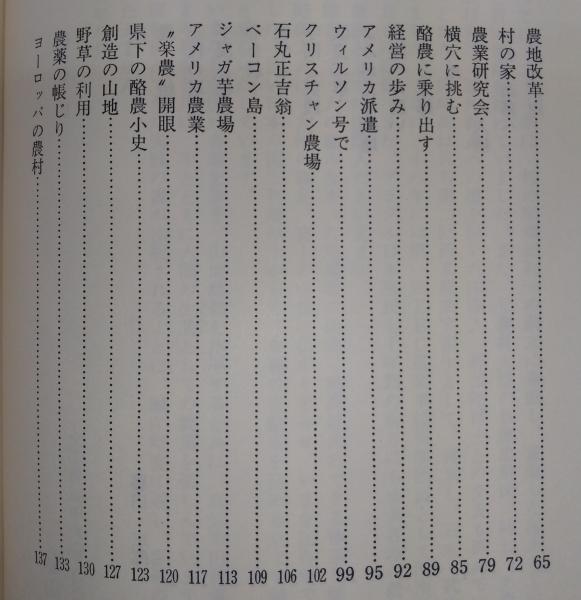 農地改革……65
村の家……72
農業研究会……79
横穴に挑む……85
酪農に乗り出す……89
経営の歩み……92
アメリカ派遣……95
ウィルソン号で……99
クリスチャン農場……102
石丸正吉翁……106
ベーコン島……109
ジャガ芋農場……113
アメリカ農業……117
〝楽農〟開眼……120
県下の酪農小史……123
創造の山地……127
野草の利用……130
農薬の帳じり……133
ヨーロッパの農村……137